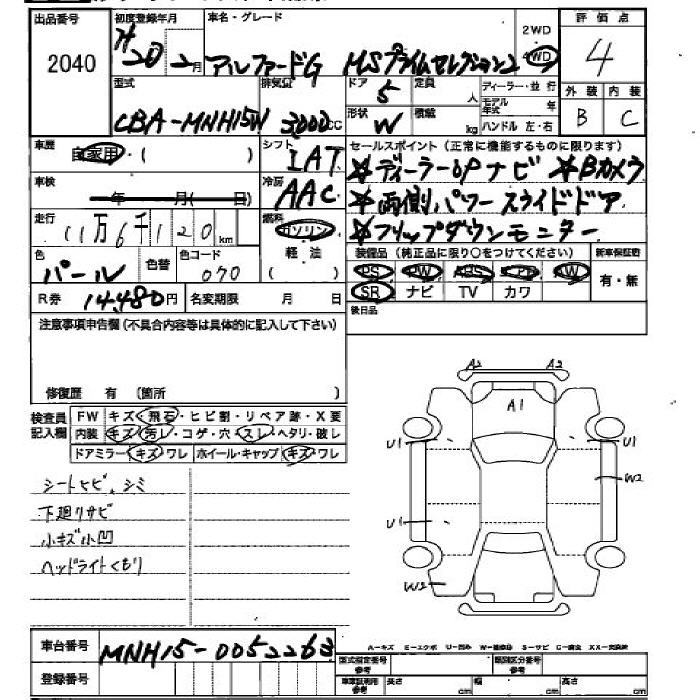 出品番号 初度登録年月 車名・グレード 2WD 4WD 評価点
2040 H20 2月 アルファードG MSプライムセレクション2 4
型式 排気量 ドア 5 定員 人 ディーラー・並行 外装 内装
CBA-MNH15W 3000cc 形状 W 積載 kg モデル年式 年 ハンドル 左・右 B C
車歴 自家用・( ) シフト IAT セールスポイント(正常に機能するものに限ります)
車検 年 月( 日) 冷房 AAC ☆ディーラーOPナビ ☆Bカメラ
☆両側パワースライドドア
走行 11万6千120km 燃料 ガソリン ☆フリップダウンモニター
色 色替 色コード 軽・油 装備品(純正品に限り○をつけてください) 新車保証書
パール 070 ( ) PS PW ABS AW 有・無
R券 14,480円 名変期限 月 日 SR ナビ TV カワ
注意事項申告欄(不具合内容等は具体的に記入して下さい) 後日品
修復歴 有 (箇所 )
検査員記入欄 FW キズ・飛石・ヒビ割・リペア跡・X要
内装 キズ・汚レ・コゲ・穴・スレ・ヘタリ・破レ
ドアミラー キズ・ワレ ホイール・キャップ キズ・ワレ
A2 A2
A1
U1 U1
W2
U1
W2
シートヒビ、シミ
下廻りサビ
小キズ小凹
ヘッドライトくもり
車台番号 MNH15-0052263
A-キズ E-エクボ U-凹み W-補修跡 S-サビ C-腐食 XX-交換済
登録番号 型式指定番号参考 類別区分番号参考
車車証明用参考 長さ cm 幅 cm 高さ cm